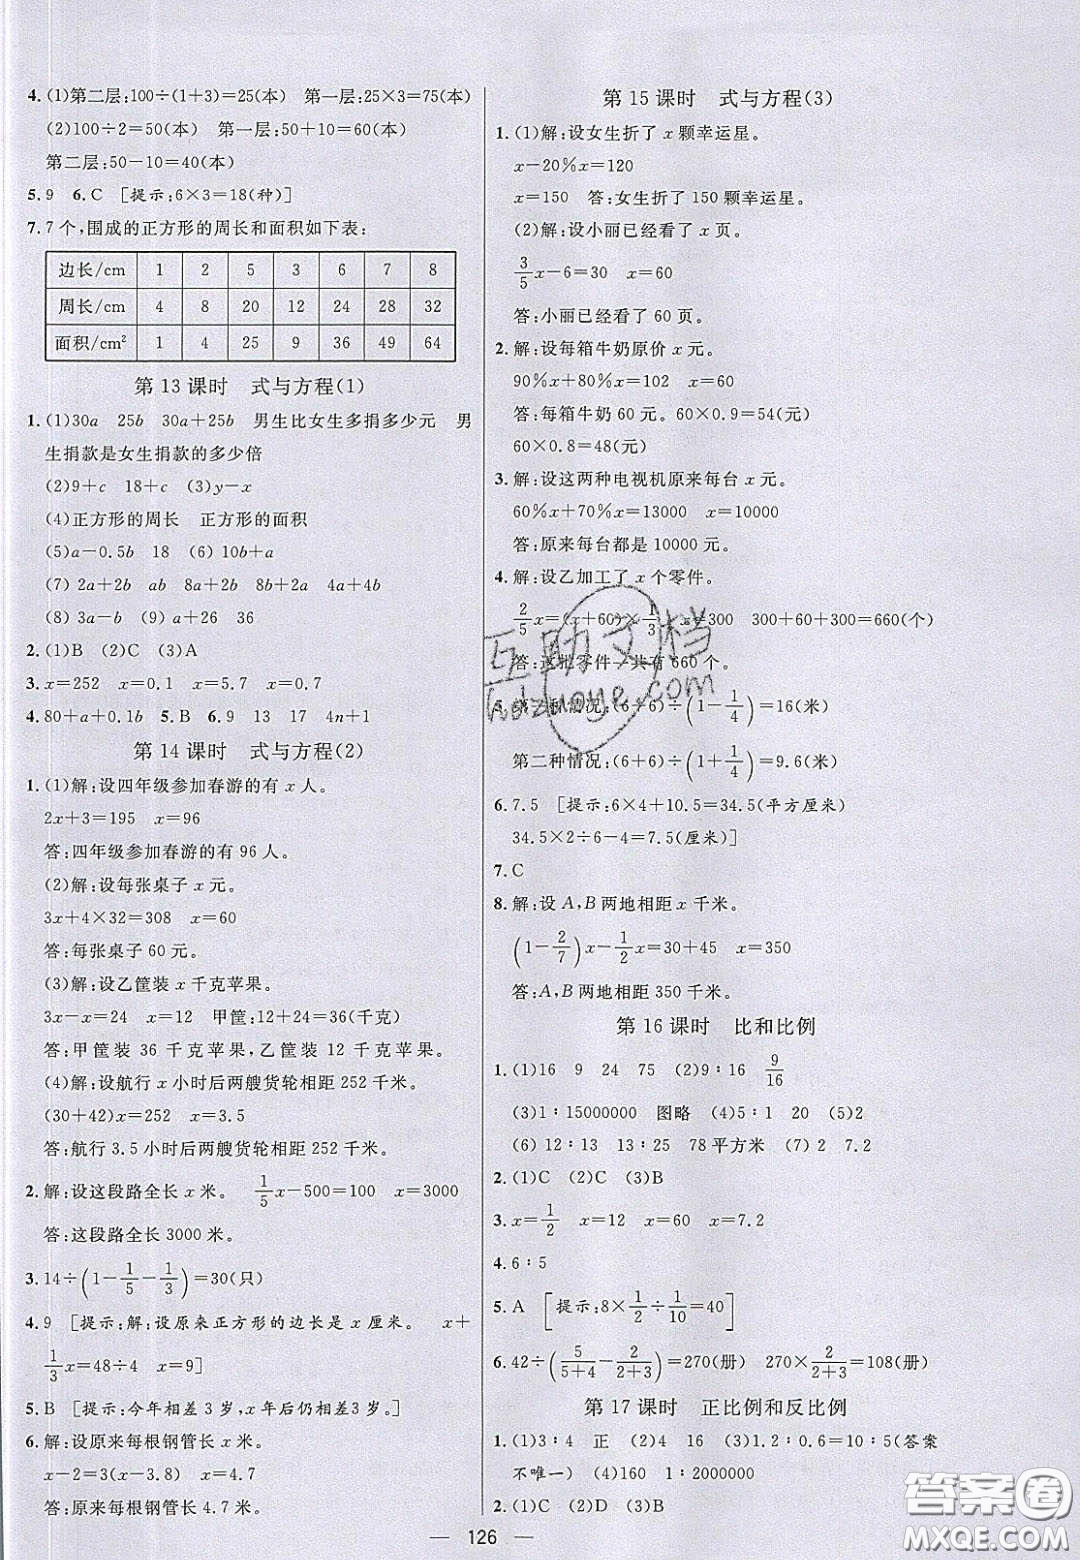 4. (1)第二层:100÷(1+3)=25(本)　第一层:25×3=75(本)
(2)100÷2=50(本)　第一层:50+10=60(本)
第二层:50-10=40(本)
5. 9　6. C　[提示:6×3=18(种)]
7. 7 个,围成的正方形的周长和面积如下表:
边长/cm　1　2　5　3　6　7　8
周长/cm　4　8　20　12　24　28　32
面积/cm²　1　4　25　9　36　49　64
第 13 课时　式与方程(1)
1. (1)30a　25b　30a+25b　男生比女生多捐多少元　男
生捐款是女生捐款的多少倍
(2)9+c　18+c　(3)y-x
(4)正方形的周长　正方形的面积
(5)a-0.5b　18　(6) 10b+a
(7) 2a+2b　ab　8a+8b　16ab
(8) 3a-2　a+26　36
2. (1)B　(2)C　(3)A
3. x=252　x=0.1　x=5.7　x=0.7
4. 80+a+0.1b　5. B　6. 9　13　17　4n+1
第 14 课时　式与方程(2)
1. (1)解:设四年级参加春游的有 x 人。
2x+3=195　x=96
答:四年级参加春游的有 96 人。
(2)解:设每张桌子 x 元。
3x+4×32=308　x=60
答:每张桌子 60 元。
(3)解:设乙筐装 x 千克苹果。
3x-x=24　x=12　甲筐:12+24=36(千克)
答:甲筐装 36 千克苹果,乙筐装 12 千克苹果。
(4)解:设航行 x 小时后两艘货轮相距 252 千米。
(30+42)x=252　x=3.5
答:航行 3.5 小时后两艘货轮相距 252 千米。
2. 解:设这段路全长 x 米。　1/5x-500=100　x=3000
答:这段路全长 3000 米。
3. 14÷(1-1/5-1/3)=30(只)
4. 9　[提示:解:设原来正方形的边长是 x 厘米。　x+
1/3x=48÷4　x=9]
5. B　[提示:今年相差 3 岁,x 年后仍相差 3 岁。]
6. 解:设原来每根钢管长 x 米。
x-2=3(x-3.8)　x=4.7
答:原来每根钢管长 4.7 米。
第 15 课时　式与方程(3)
1. (1)解:设女生折了 x 颗幸运星。
x-20%x=120
x=150　答:女生折了 150 颗幸运星。
(2)解:设小丽已经看了 x 页。
3/5x-6=30　x=60
答:小丽已经看了 60 页。
2. 解:设每箱牛奶原价 x 元。
90%x+80%x=102　x=60
答:每箱牛奶 60 元。60×0.9=54(元)
60×0.8=48(元)
3. 解:设这两种电视机原来每台 x 元。
60%x+70%x=13000　x=10000
答:原来每台都是 10000 元。
4. 解:设乙加工了 x 个零件。
2/5x=(x+60)×1/3　x=300　300+60+300=660(个)
答:这批零件一共有 660 个。
5. 第一种情况:(6+6)÷(1-1/4)=16(米)
第二种情况:(6+6)÷(1+1/4)=9.6(米)
6. 7.5　[提示:6×4+10.5=34.5(平方厘米)
34.5×2÷6-4=7.5(厘米)]
7. C
8. 解:设 A,B 两地相距 x 千米。
(1-2/7)x-1/2x=30+45　x=350
答:A,B 两地相距 350 千米。
第 16 课时　比和比例
1. (1)16　9　24　75　(2)9∶16　9/16
(3)1∶15000000　图略　(4)5∶1　20　(5)2
(6) 12∶12　13∶25　78 平方米　(7) 2　7.2
2. (1)C　(2)C　(3)B
3. x=1/2　x=12　x=60　x=7.2
4. 6∶5
5. A　[提示:8×1/2÷1/10=40]
6. 42÷(5/(5+4)-2/(2+3))=270(册)　270×2/(2+3)=108(册)
第 17 课时　正比例和反比例
1. (1)3∶4　正　(2)4　16　(3)1.2∶0.6=10∶5(答案
不唯一)　(4)160　1∶2000000
2. (1)C　(2)D　(3)B
— 126 —
互助文档
hdzuoye.com
答案圈
MXQE.COM